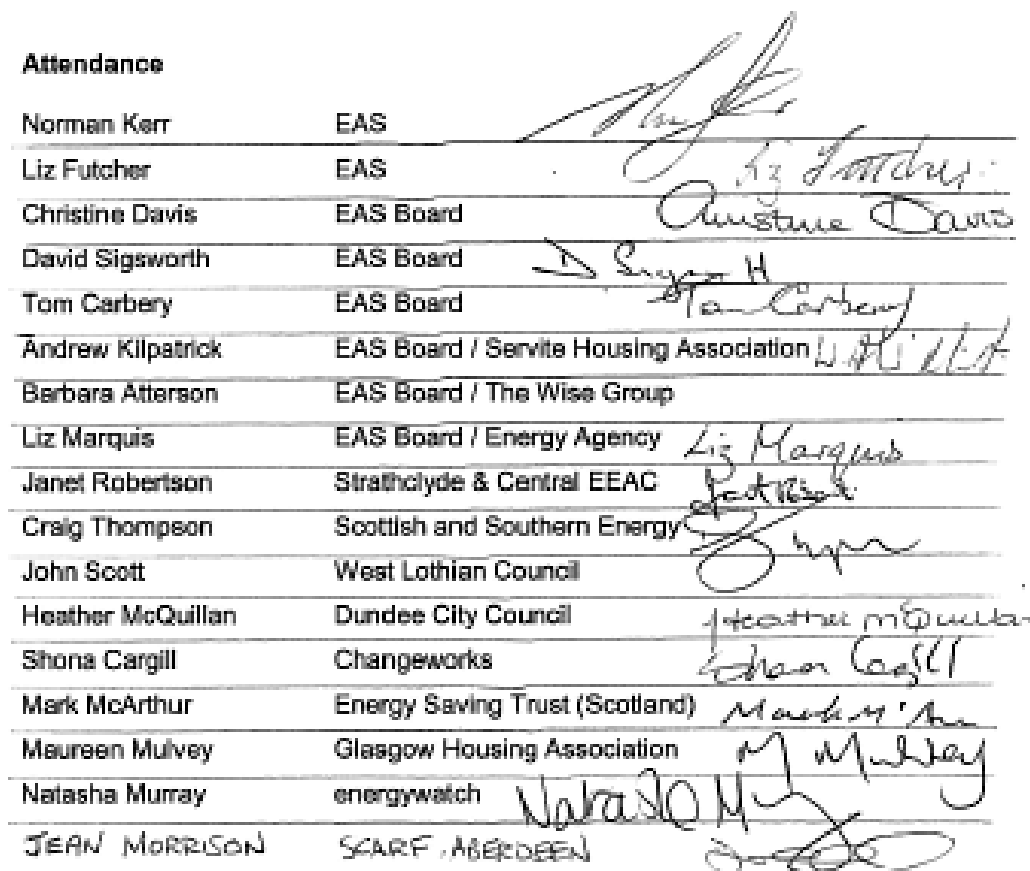 Attendance
Norman Kerr EAS
Liz Futcher EAS Liz Futcher
Christine Davis EAS Board Christine Davis
David Sigsworth EAS Board D
Tom Carbery EAS Board Tom Carbery
Andrew Kilpatrick EAS Board / Servite Housing Association
Barbara Atterson EAS Board / The Wise Group
Liz Marquis EAS Board / Energy Agency Liz Marquis
Janet Robertson Strathclyde & Central EEAC
Craig Thompson Scottish and Southern Energy
John Scott West Lothian Council
Heather McQuillan Dundee City Council Heather McQuillan
Shona Cargill Changeworks Shona Cargill
Mark McArthur Energy Saving Trust (Scotland) Mark
Maureen Mulvey Glasgow Housing Association M Mulvey
Natasha Murray energywatch Natasha
JEAN MORRISON SCARF. ABERDEEN